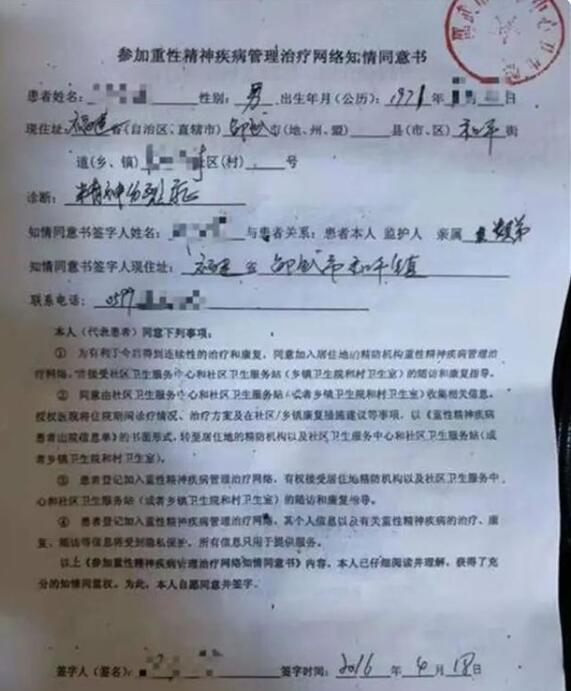 参加重性精神疾病管理治疗网络知情同意书
患者姓名： 性别：男 出生年月（公历）：1971年 日
现住址：福建省（自治区、直辖市）邵武市（地、州、盟） 县（市、区）和平街
道（乡、镇） 社区（村） 号
诊断：精神分裂症
知情同意书签字人姓名： 与患者关系：患者本人 监护人 亲属
知情同意书签字人现住址：福建省邵武市和平镇
联系电话：0599
本人（代表患者）同意下列事项：
① 为有利于今后得到连续性的治疗和康复，同意加入居住地的精防机构重性精神疾病管理治
疗网络，并接受社区卫生服务中心和社区卫生服务站（乡镇卫生院和村卫生室）的随访和康复指导。
② 同意由社区卫生服务中心和社区卫生服务站（或者乡镇卫生院和村卫生室）收集相关信息，
授权医院将住院期间诊疗情况、治疗方案及在社区/乡镇康复措施建议等事项，以《重性精神疾病
患者出院信息单》的书面形式，转至居住地的精防机构以及社区卫生服务中心和社区卫生服务站（或
者乡镇卫生院和村卫生室）。
③ 患者登记加入重性精神疾病管理治疗网络，有权接受居住地精防机构以及社区卫生服务中
心和社区卫生服务站（或者乡镇卫生院和村卫生室）的随访和康复指导。
④ 患者登记加入重性精神疾病管理治疗网络，其个人信息以及有关重性精神疾病的治疗、康
复、随访等信息将受到隐私保护，所有信息只用于提供服务。
以上《参加重性精神疾病管理治疗网络知情同意书》内容，本人已仔细阅读并理解，获得了充
分的知情同意权。为此，本人自愿同意并签字。
签字人（签名）： 签字时间：2016年4月18日